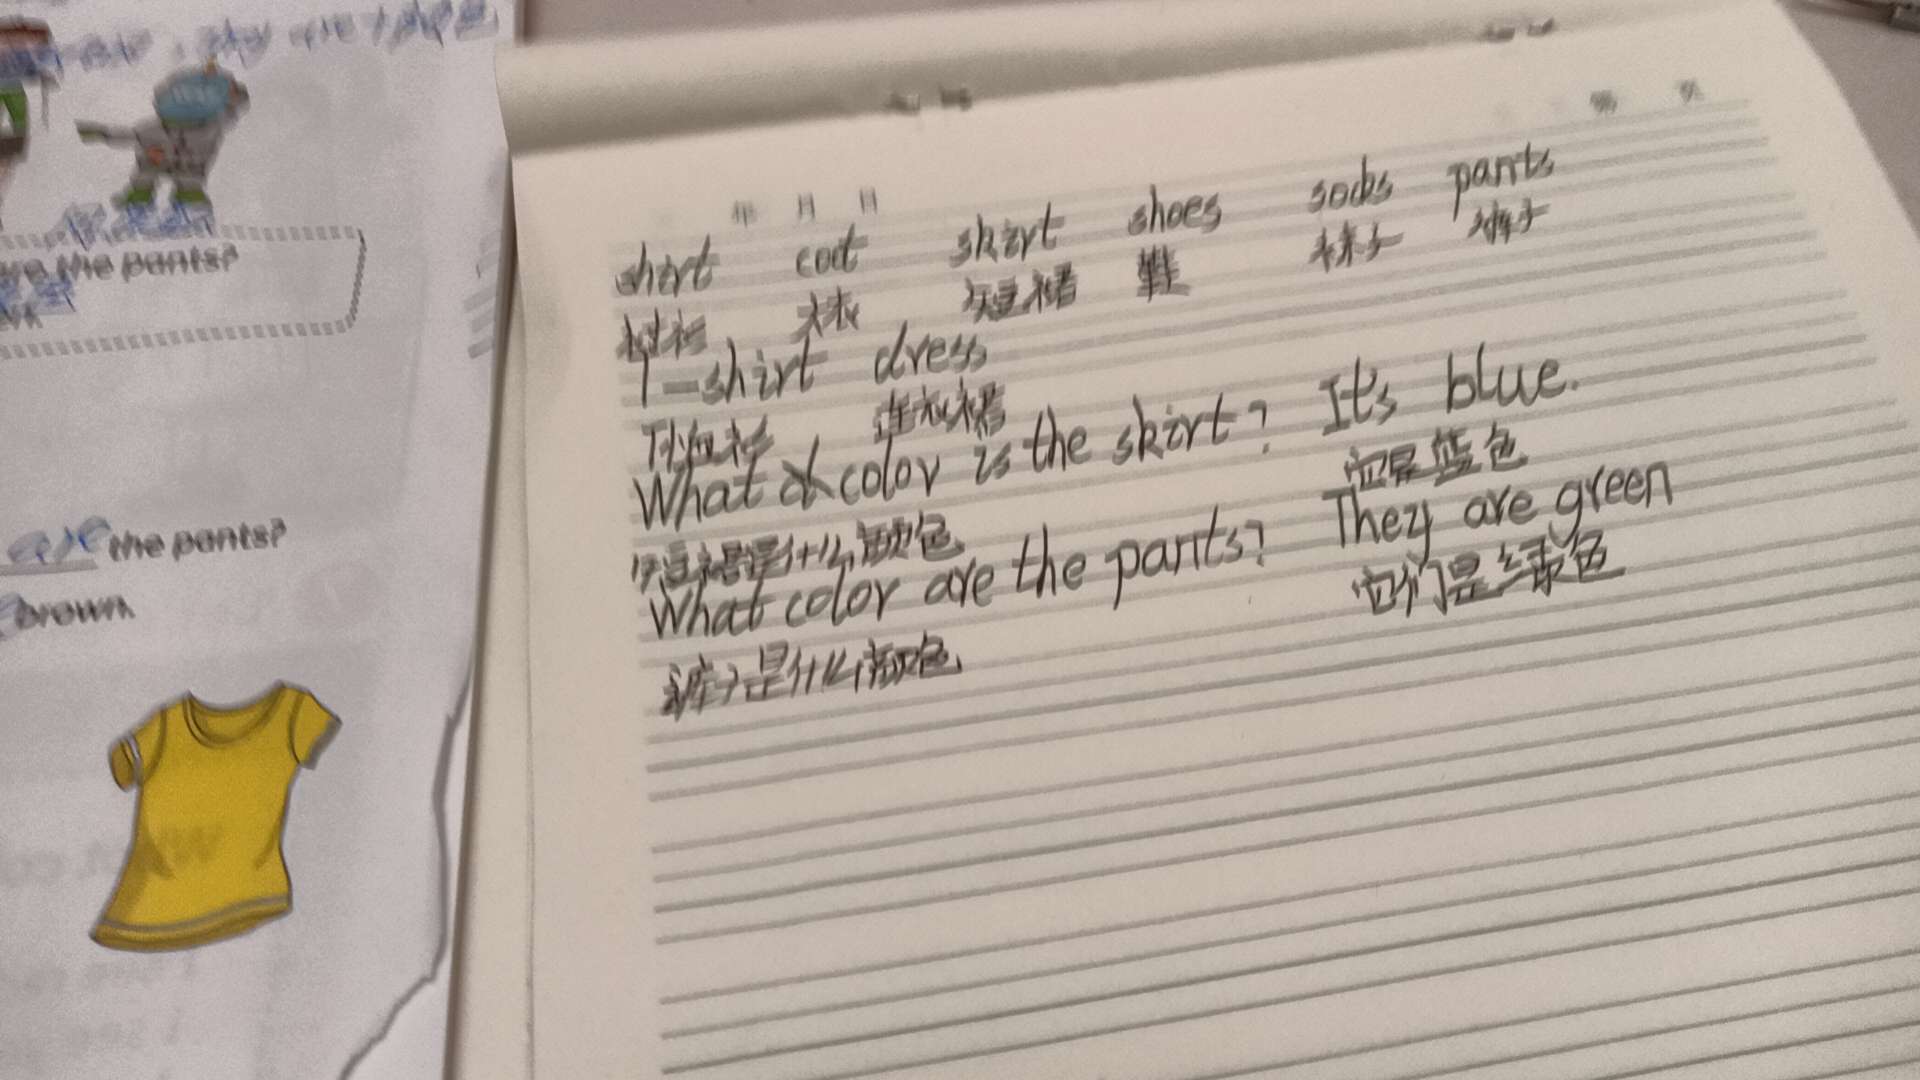 are the pants?
are the pants?
brown.
年 月 日
第 页
shirt coat skirt shoes socks pants
衬衫 大衣 短裙 鞋 袜子 裤子
T-shirt dress
T恤衫 连衣裙
What color is the skirt? It's blue.
短裙是什么颜色 它是蓝色
What color are the pants? They are green
裤子是什么颜色 它们是绿色